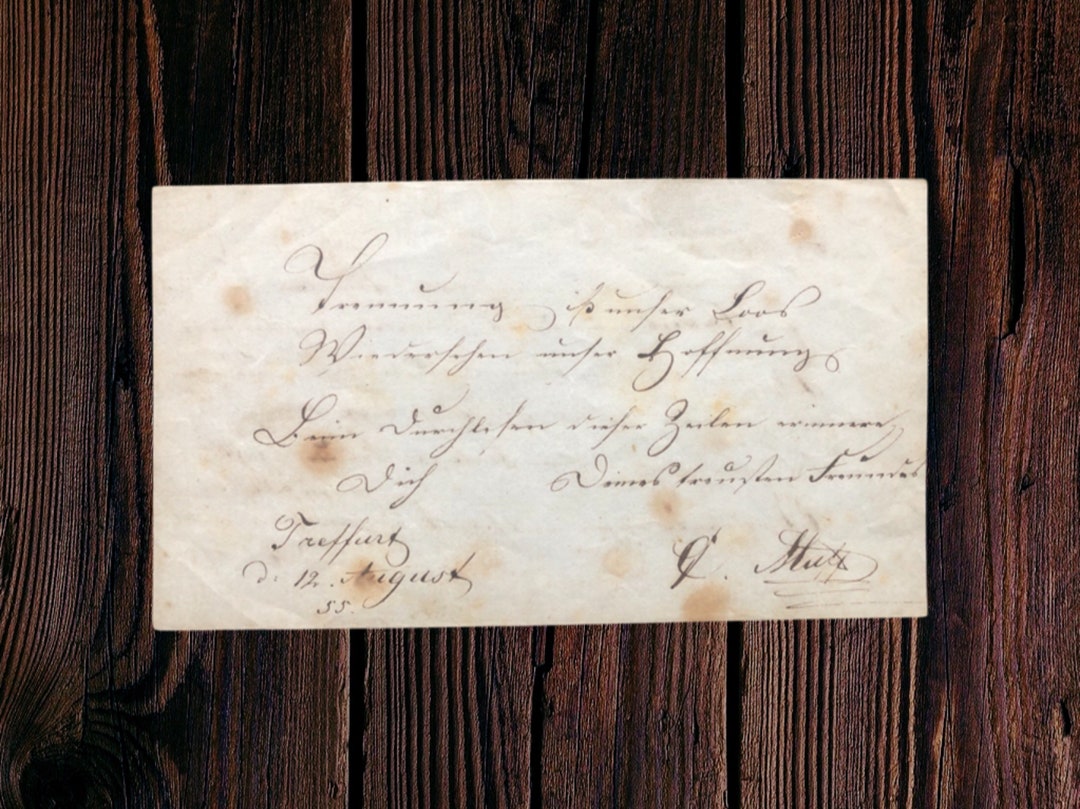 Trennung ist unser Loos
Wiedersehen unser Hoffnung
Beim Durchlesen dieser Zeilen erinnere
Dich Deines treusten Freundes
Treffurt
d: 12. August
55.
C. Mutz